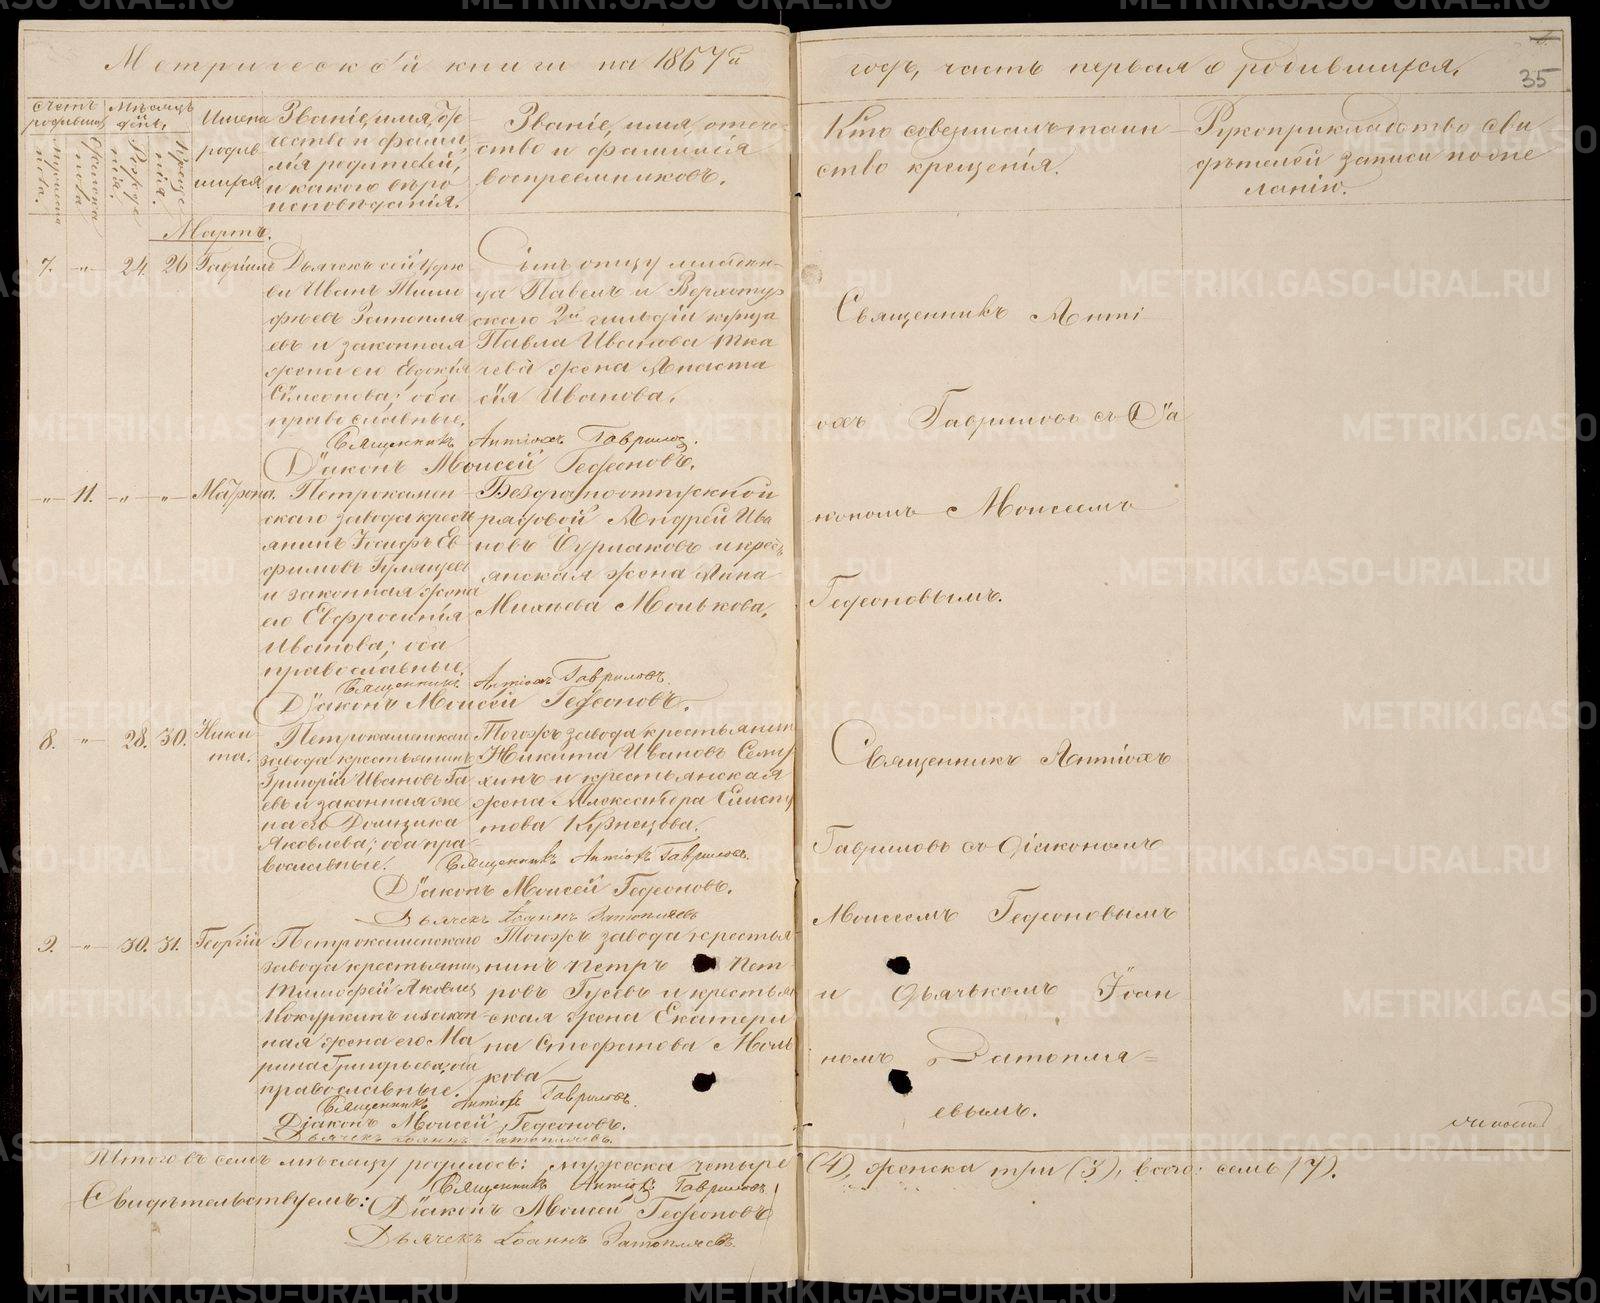 Метрической книги на 1867й годъ, часть первая о родившихся.
35
Счетъ родившихся
Мѣсяцъ и день
Имена родив шихся
Мужеска пола.
Женска пола
Рожде нія.
Креще нія.
Званіе, имя, оте чество и фами лія родителей, и какого вѣро исповѣданія.
Званіе, имя, отече ство и фамилія воспріемниковъ.
Кто совершалъ таин ство крещенія.
Рукоприкладство сви дѣтелей записи по же ланію.
Мартъ.
7. -„- 24. 26 Гавріилъ
Дьячекъ сей церк
ви Иванъ Тимо
фѣевъ Затопля
евъ и законная
жена его Евдокія
Симеонова; оба
православные.
Сынъ отцу
ца Павелъ и Верхотур
скаго 2й гильдіи купца
Павла Иванова Тка
чева жена Анаста
сія Иванова.
Священникъ Антіохъ Гавриловъ.
Діаконъ Моисей Гедеоновъ.
Священникъ Анті
охъ Гавриловъ съ Діа
кономъ Моисеемъ
Гедеоновымъ.
-„- 11. -„- -„- Матрона.
Петрокамен
скаго завода кресть
янинъ Іосифъ Ев
фимовъ Гуляцевъ
и законная жена
его Евфросинія
Иванова; оба
православные.
Безсрочноотпускной
рядовой Андрей Ива
новъ Бурлаковъ и кресть
янская жена Анна
Михѣева Монькова.
Священникъ Антіохъ Гавриловъ.
Діаконъ Моисей Гедеоновъ.
8. -„- 28. 30. Ники
та.
Петрокаменскаго
завода крестьянинъ
Григорій Ивановъ Га
евъ и законная же
на его Домника
Яковлева; оба пра
вославные.
Тогожъ завода крестьянинъ
Никита Ивановъ Семух
хинъ и крестьянская
жена Александра Емисту
това Кузнецова.
Священникъ Антіохъ Гавриловъ.
Діаконъ Моисей Гедеоновъ.
Дьячекъ Іоаннъ Затопляевъ
Священникъ Антіохъ
Гавриловъ съ діакономъ
Моисеемъ Гедеоновымъ
и дьячькомъ Іоан
номъ Затопля=
евымъ.
9. -„- 30. 31. Георгій
Петрокаменскаго
завода крестьянинъ
Тимофей Яковлевъ
Кокуркинъ и закон
ная жена его Ма
рина Григорьева; оба
православные.
Тогожъ завода крестья
нинъ Петръ Пет
ровъ Гусевъ и крестьян
ская жена Екатери
на Стефанова Моль
кова
Священникъ Антіохъ Гавриловъ.
Діаконъ Моисей Гедеоновъ.
Дьячекъ Іоаннъ Затопляевъ.
Итого въ семъ мѣсяцу родилось: мужеска четыре (4), женска три (3), всего: семь (7).
Священникъ Антіохъ Гавриловъ
Свидѣтельствуемъ: Діаконъ Моисей Гедеоновъ
Дьячекъ Іоаннъ Затопляевъ.
METRIKI.GASO-URAL.RU